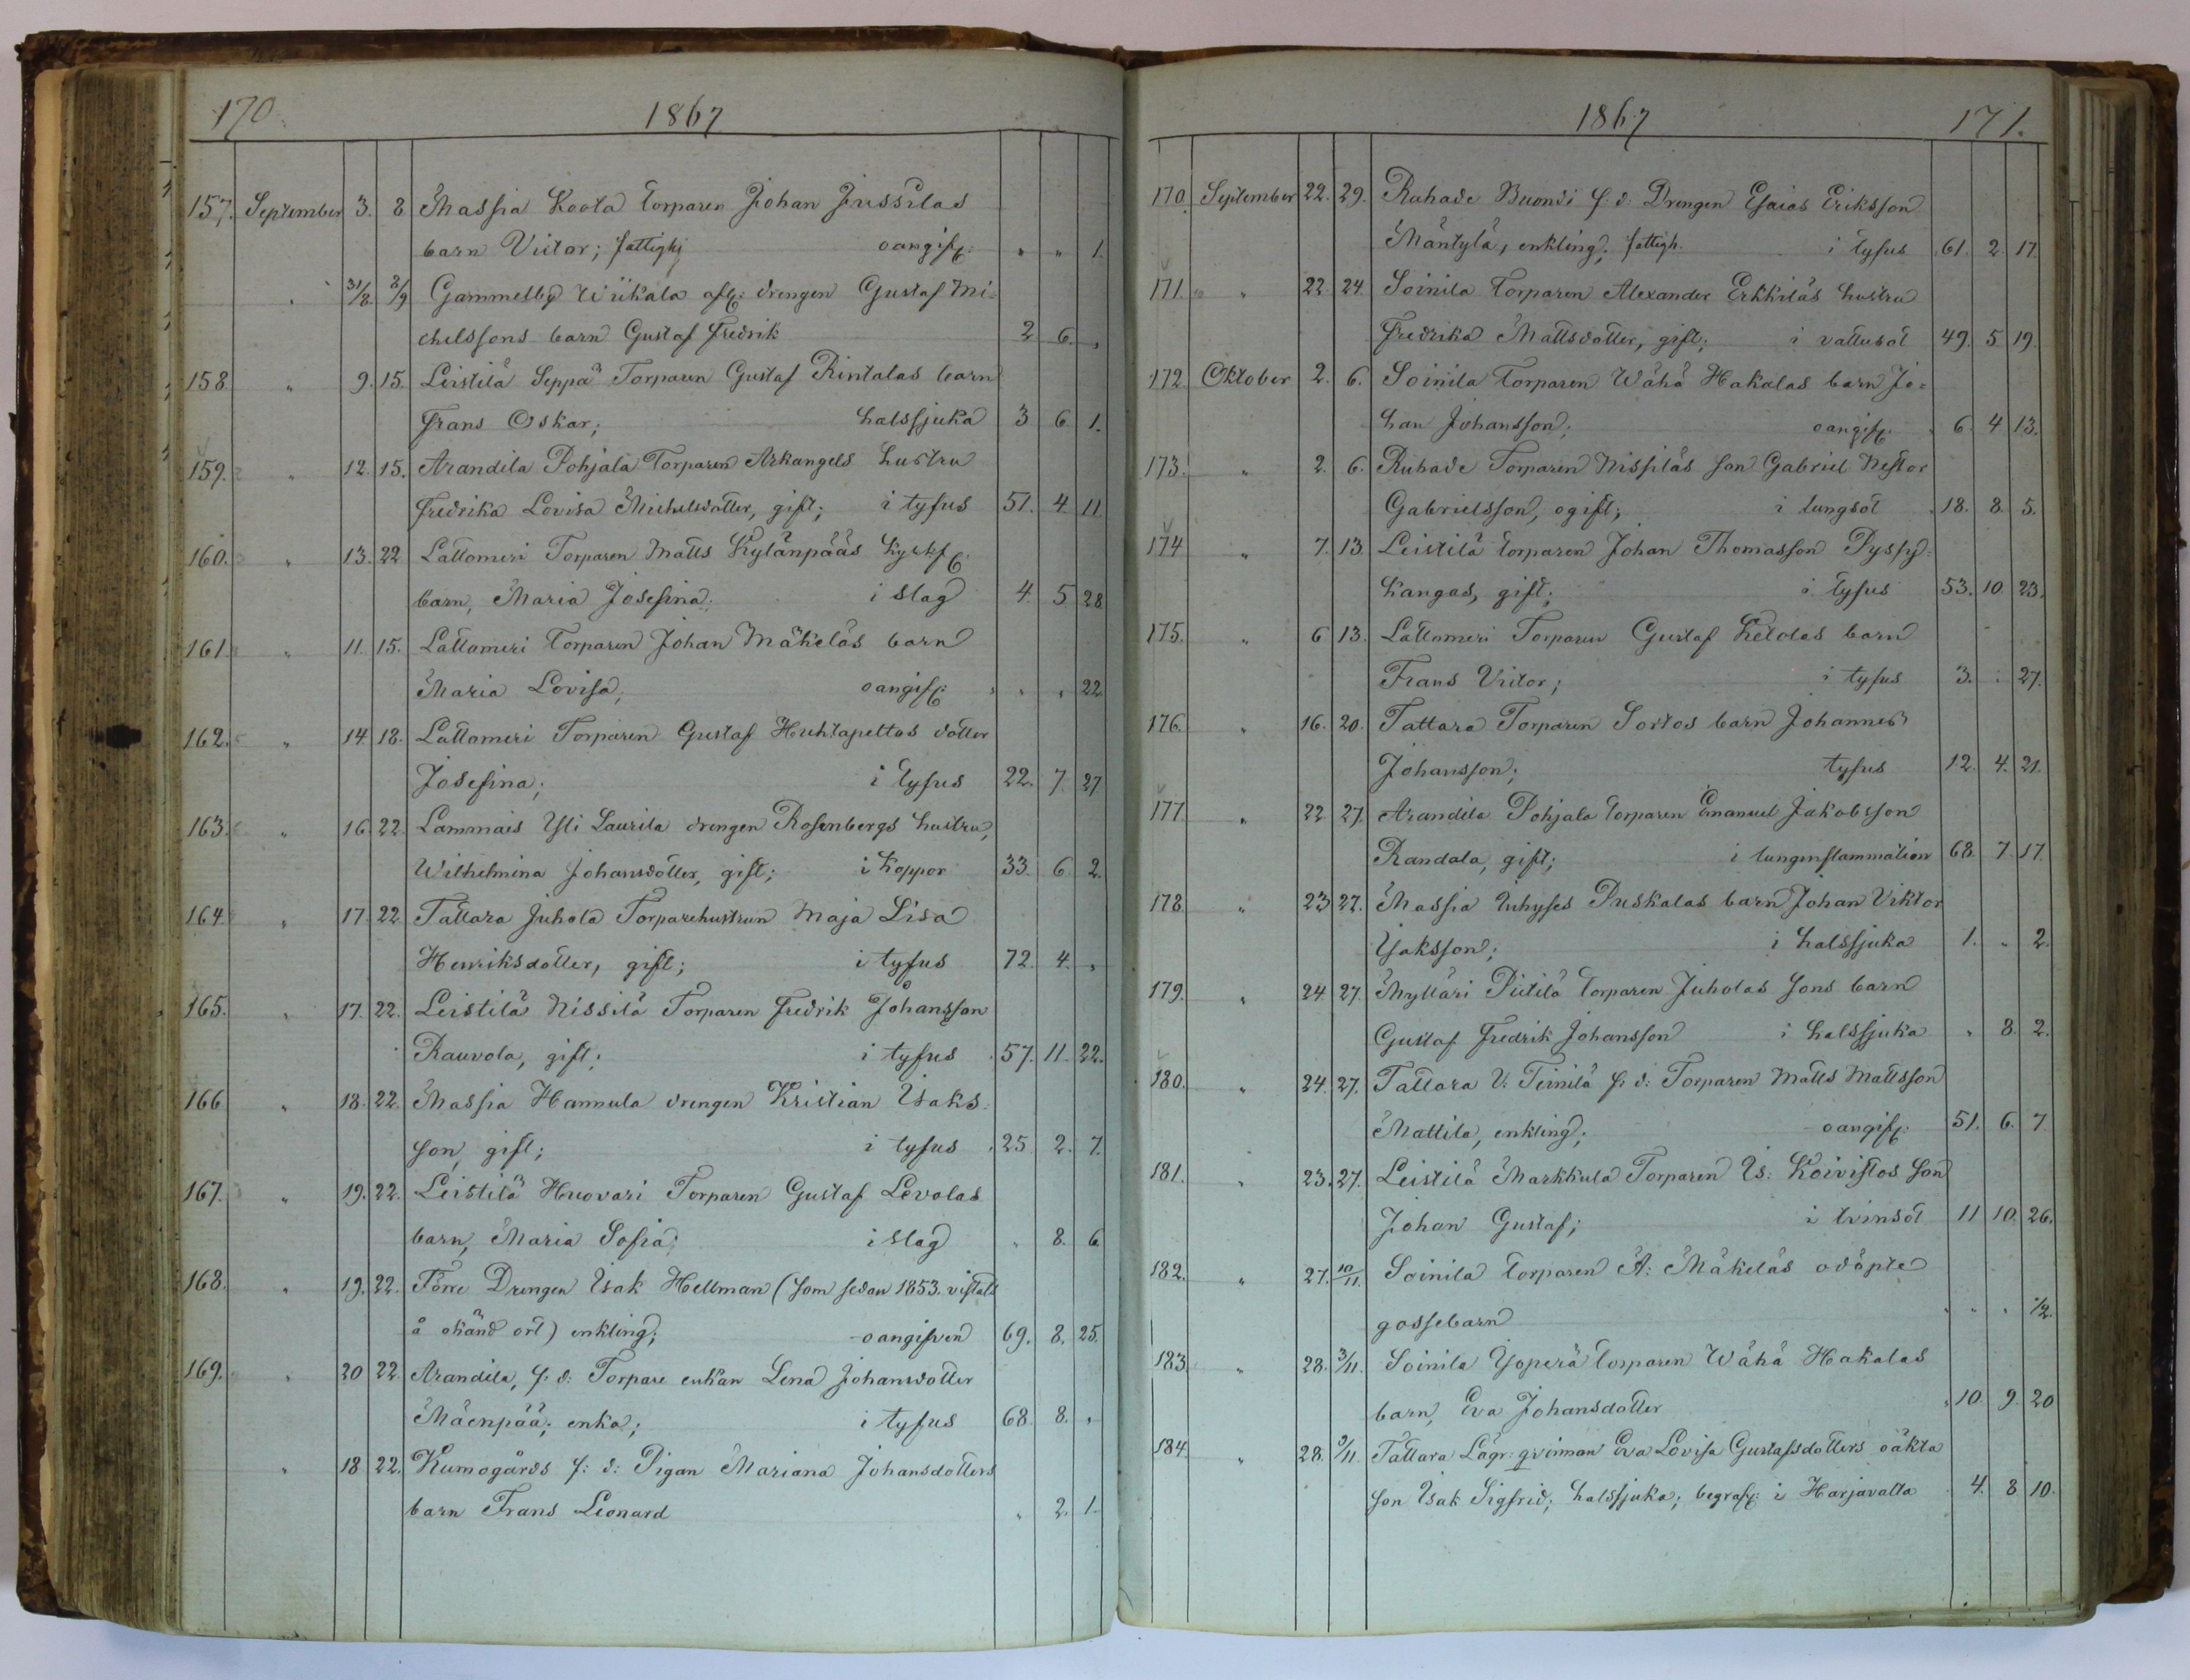 170. 1867
157. September 3. 8 Massia Koota Torparen Johan Jussilas
barn Victor; fattighj oangifv: " " 1.
" 31/8. 8/9 Gammelby Wiikala afsk: drengen Gustaf Mi-
chelssons barn Gustaf Fredrik 2 6. "
158 " 9. 15. Leistilä Seppä Torparen Gustaf Rintalas barn
Frans Oskar; halssjuka 3 6 1.
159. " 12. 15. Arandila Pohjala Torparen Arkangels hustru
Fredrika Lovisa Michelsdotter, gift; i tyfus 51. 4 11
160. " 13. 22 Lattomeri Torparen Matts Kylänpääs
barn, Maria Josefina; i slag 4. 5 28
161. " 11. 15. Lattomeri Torparen Johan Mäkeläs barn
Maria Lovisa; oangifv: " " 22
162. " 14. 18. Lattomeri Torparen Gustaf Huhtapeltos dotter
Josefina; i tyfus 22. 7. 27
163. " 16 22 Lammais Yli Laurila drengen Rosenbergs hustru,
Wilhelmina Johansdotter, gift; i koppor 33. 6. 2.
164. " 17. 22 Tattara Juhola Torparehustrun Maja Lisa
Henriksdotter, gift; i tyfus 72. 4. "
165. " 17. 22. Leistilä Nissilä Torparen Fredrik Johansson
Rauvola, gift; i tyfus 57. 11. 22.
166 " 18. 22. Massia Hannula drengen Kristian Isaks-
son, gift; i tyfus 25 2. 7.
167. " 19. 22. Leistilä Huovari Torparen Gustaf Levolas
barn, Maria Sofia; i slag " 8. 6
168. " 19. 22. Torre Drengen Isak Hellman (som sedan 1853. vistats
å okänd ort) enkling; oangifven 69. 8. 25.
169. " 20 22. Arandila, f: d: Torpare enkan Lena Johansdotter
Mäenpää; enka; i tyfus 68. 8. "
" 18 22. Kumogårds f: d: Pigan Mariana Johansdotters
barn Frans Leonard " 2. 1.
1867 171.
170. September 22. 29. Ruhade Buondi f: d: Drengen Esaias Eriksson
Mäntylä, enkling; fattigh. i tyfus 61. 2 17.
171. " 22. 24. Soinila Torparen Alexander Erkkiläs hustru
Fredrika Mattsdotter, gift; i vattusot 49. 5 19.
172 Oktober 2. 6. Soinila Torparen Wähä Hakalas barn Jo-
han Johansson; oangifv: 6. 4 13.
173. " 2. 6. Ruhade Torparen Nissiläs son Gabriel Nestor
Gabrielsson, ogift; i lungsot 18. 8. 5.
174 " 7. 13. Leistilä Torparen Johan Thomasson Pyssy-
kangas, gift; i tyfus 53. 10. 23.
175. " 6 13. Lattomeri Torparen Gustaf Keldas barn
Frans Victor; i tyfus 3. " 27.
176. " 16. 20. Tattara Torparen Sortos barn Johannes
Johansson; tyfus 12. 4. 21.
177 " 22 27. Arandila Pohjala Torparen Emanuel Jakobsson
Randala, gift; i lunginflammation 68. 7. 17.
178 " 23 27. Massia Inhyses Puskalas barn Johan Viktor
Isaksson; i halssjuka 1. " 2.
179. " 24. 27. Mylläri Piitilä Torparen Juholas sons barn
Gustaf Fredrik Johansson i halssjuka " 8. 2.
180. " 24. 27. Tattara V: Teinilä f: d: Torparen Matts Mattsson
Mattila, enkling; oangifv: 51. 6. 7.
181. " 23. 27. Leistilä Markkula Torparen Is: Koivistos son
Johan Gustaf; i tvinsot 11 10. 26.
182. " 27. 10/11. Soinila Torparen A: Mäkeläs odöpte
gossebarn " " 1/2.
183. " 28. 3/11. Soinila Yöperä Torparen Wähä Hakalas
barn, Eva Johansdotter 10. 9. 20
184. " 28. 3/11. Tattara Lägr: qvinnan Eva Lovisa Gustafsdotters oäkta
son Isak Sigfrid; halssjuka; begrafv: i Harjavalta 4. 8. 10.